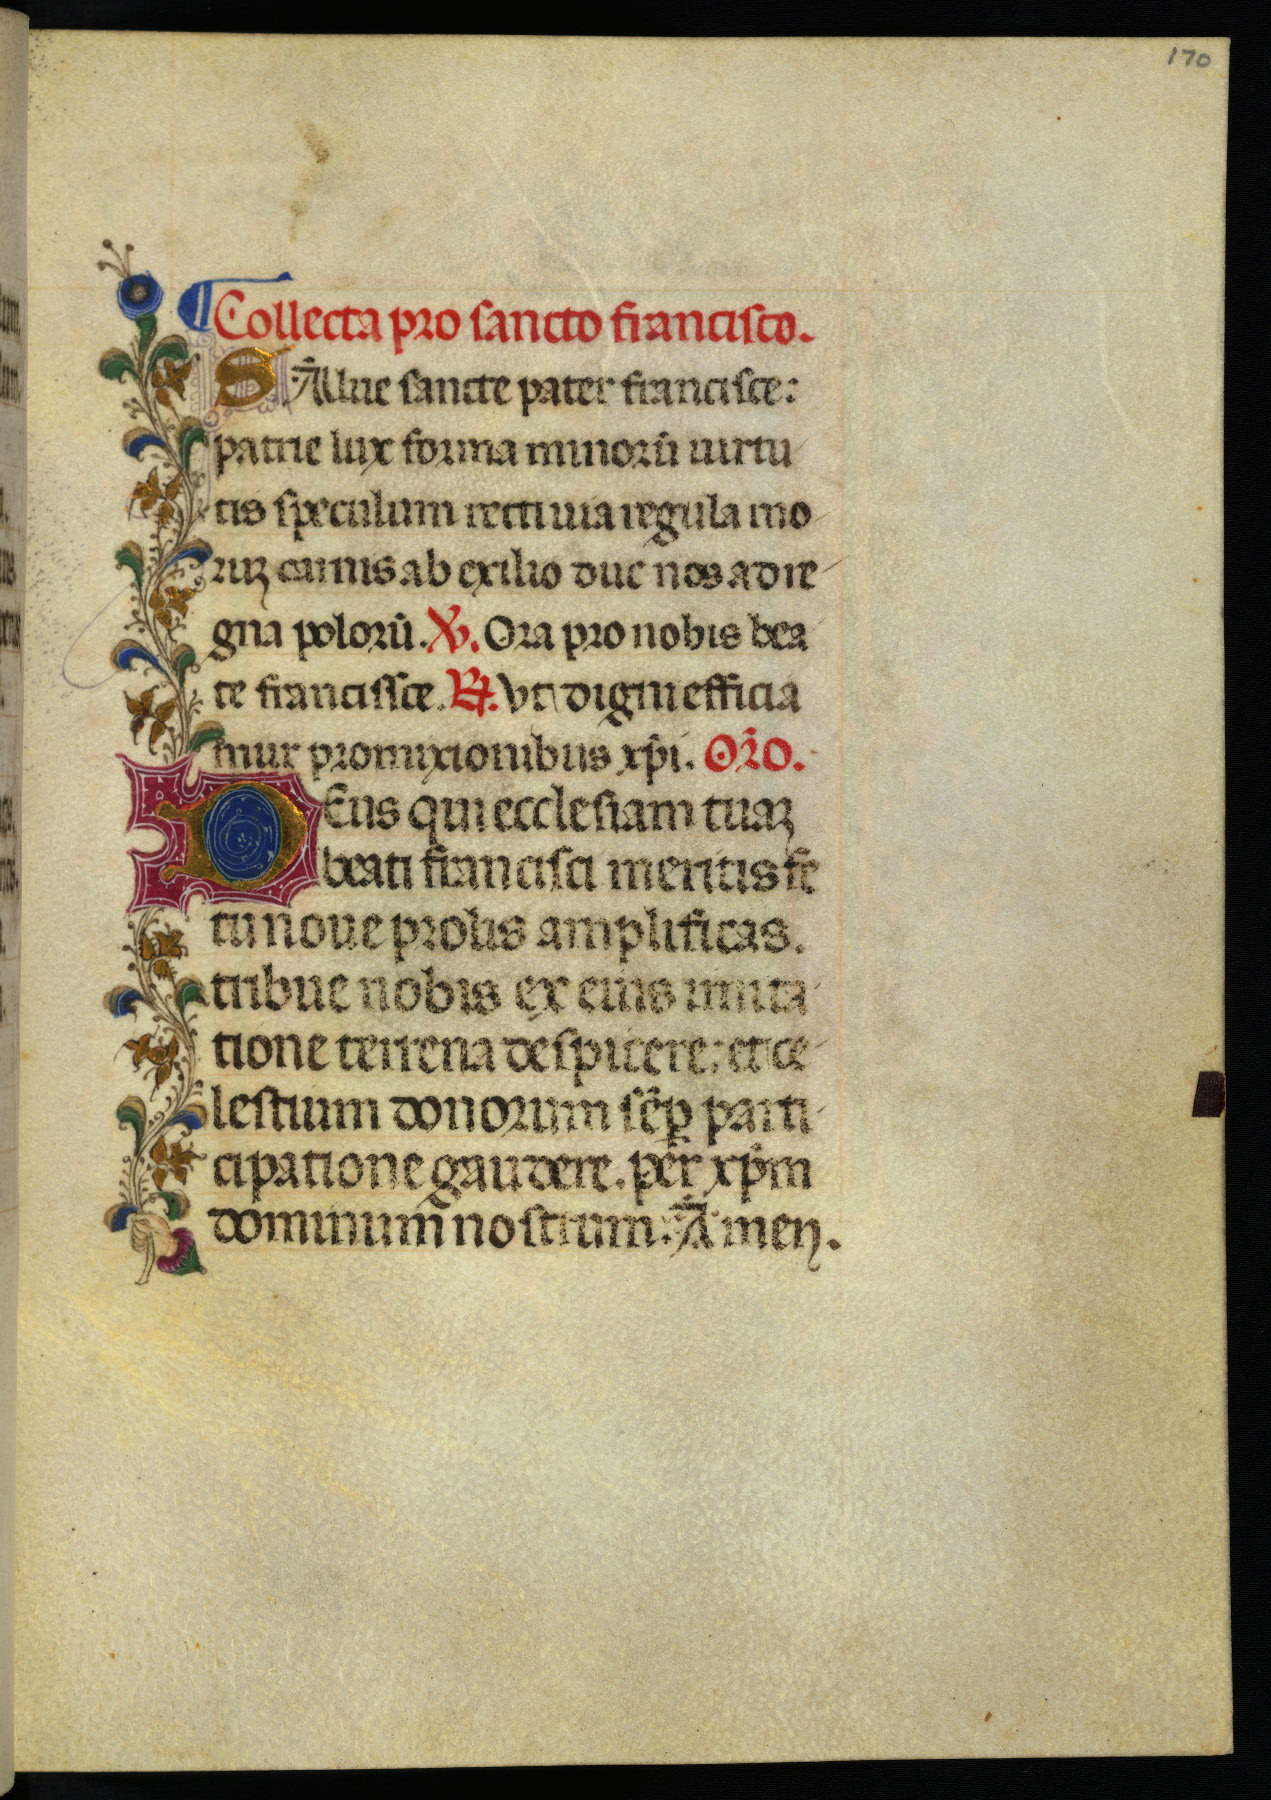 170
Collecta pro sancto francisco.
SAlue sancte pater francisce:
patrie lux forma minorū uirtu
tis speculum recti uia regula mo
rūꝫ carnis ab exilio duc nos ad re
gna polorū. ℣. Ora pro nobis bea
te francissce. ℟. Vt digni efficia
mur promixionibus xp̄i. Or̄o.
DEus qui ecclesiam tuaꝫ
beati francisci meritis fe
tu noue prolis amplificas.
tribue nobis ex eius imita
tione terrena despicere: et ce
lestium donorum sēꝑ parti
cipatione gaudere. per xp̄m
dominum nostrum: Amen.